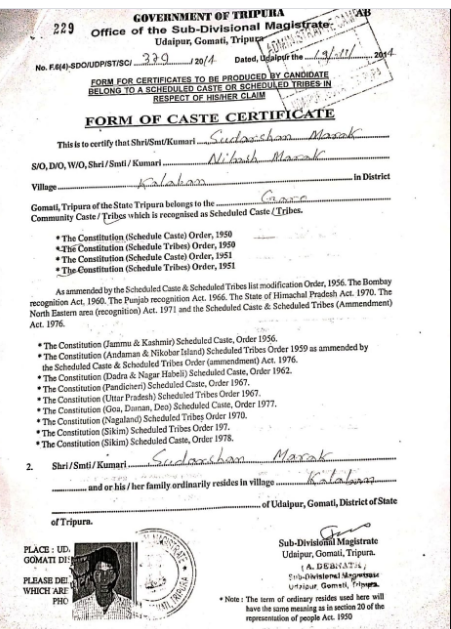 229
GOVERNMENT OF TRIPURA
AB
Office of the Sub-Divisional Magistrate
Udaipur, Gomati, Tripura
No. F.6(4)-SDO/UDP/ST/SC/ 339 /2014 Dated, Udaipur the 19/11/ 2014
FORM FOR CERTIFICATES TO BE PRODUCED BY CANDIDATE
BELONG TO A SCHEDULED CASTE OR SCHEDULED TRIBES IN
RESPECT OF HIS/HER CLAIM
FORM OF CASTE CERTIFICATE
This is to certify that Shri/Smt/Kumari Sudarshan Marak
S/O, D/O, W/O, Shri / Smti / Kumari Nibash Marak
Village Kalaban in District
Gomati, Tripura of the State Tripura belongs to the Garo
Community Caste / Tribes which is recognised as Scheduled Caste / Tribes.
* The Constitution (Schedule Caste) Order, 1950
* The Constitution (Schedule Tribes) Order, 1950
* The Constitution (Schedule Caste) Order, 1951
* The Constitution (Schedule Tribes) Order, 1951
As ammended by the Scheduled Caste & Scheduled Tribes list modification Order, 1956. The Bombay
recognition Act, 1960. The Punjab recognition Act. 1966. The State of Himachal Pradesh Act. 1970. The
North Eastern area (recognition) Act. 1971 and the Scheduled Caste & Scheduled Tribes (Ammendment)
Act. 1976.
* The Constitution (Jammu & Kashmir) Scheduled Caste, Order 1956.
* The Constitution (Andaman & Nikobor Island) Scheduled Tribes Order 1959 as ammended by
the Scheduled Caste & Scheduled Tribes Order (ammendment) Act. 1976.
* The Constitution (Dadra & Nagar Habeli) Scheduled Caste, Order 1962.
* The Constitution (Pandicheri) Scheduled Caste, Order 1967.
* The Constitution (Uttar Pradesh) Scheduled Tribes Order 1967.
* The Constitution (Goa, Daman, Deo) Scheduled Caste, Order 1977.
* The Constitution (Nagaland) Scheduled Tribes Order 1970.
* The Constitution (Sikim) Scheduled Tribes Order 197.
* The Constitution (Sikim) Scheduled Caste, Order 1978.
2. Shri / Smti / Kumari Sudarshan Marak
and or his / her family ordinarily resides in village Kalaban
of Udaipur, Gomati, District of State
of Tripura.
Sub-Divisional Magistrate
Udaipur, Gomati, Tripura.
(A. DEBNATH)
Sub-Divisional Magistrate
Udaipur, Gomati, Tripura.
PLACE : UD
GOMATI DI
PLEASE DEL
WHICH ARE
PHO
* Note : The term of ordinary resides used here will
have the same meaning as in section 20 of the
representation of people Act. 1950